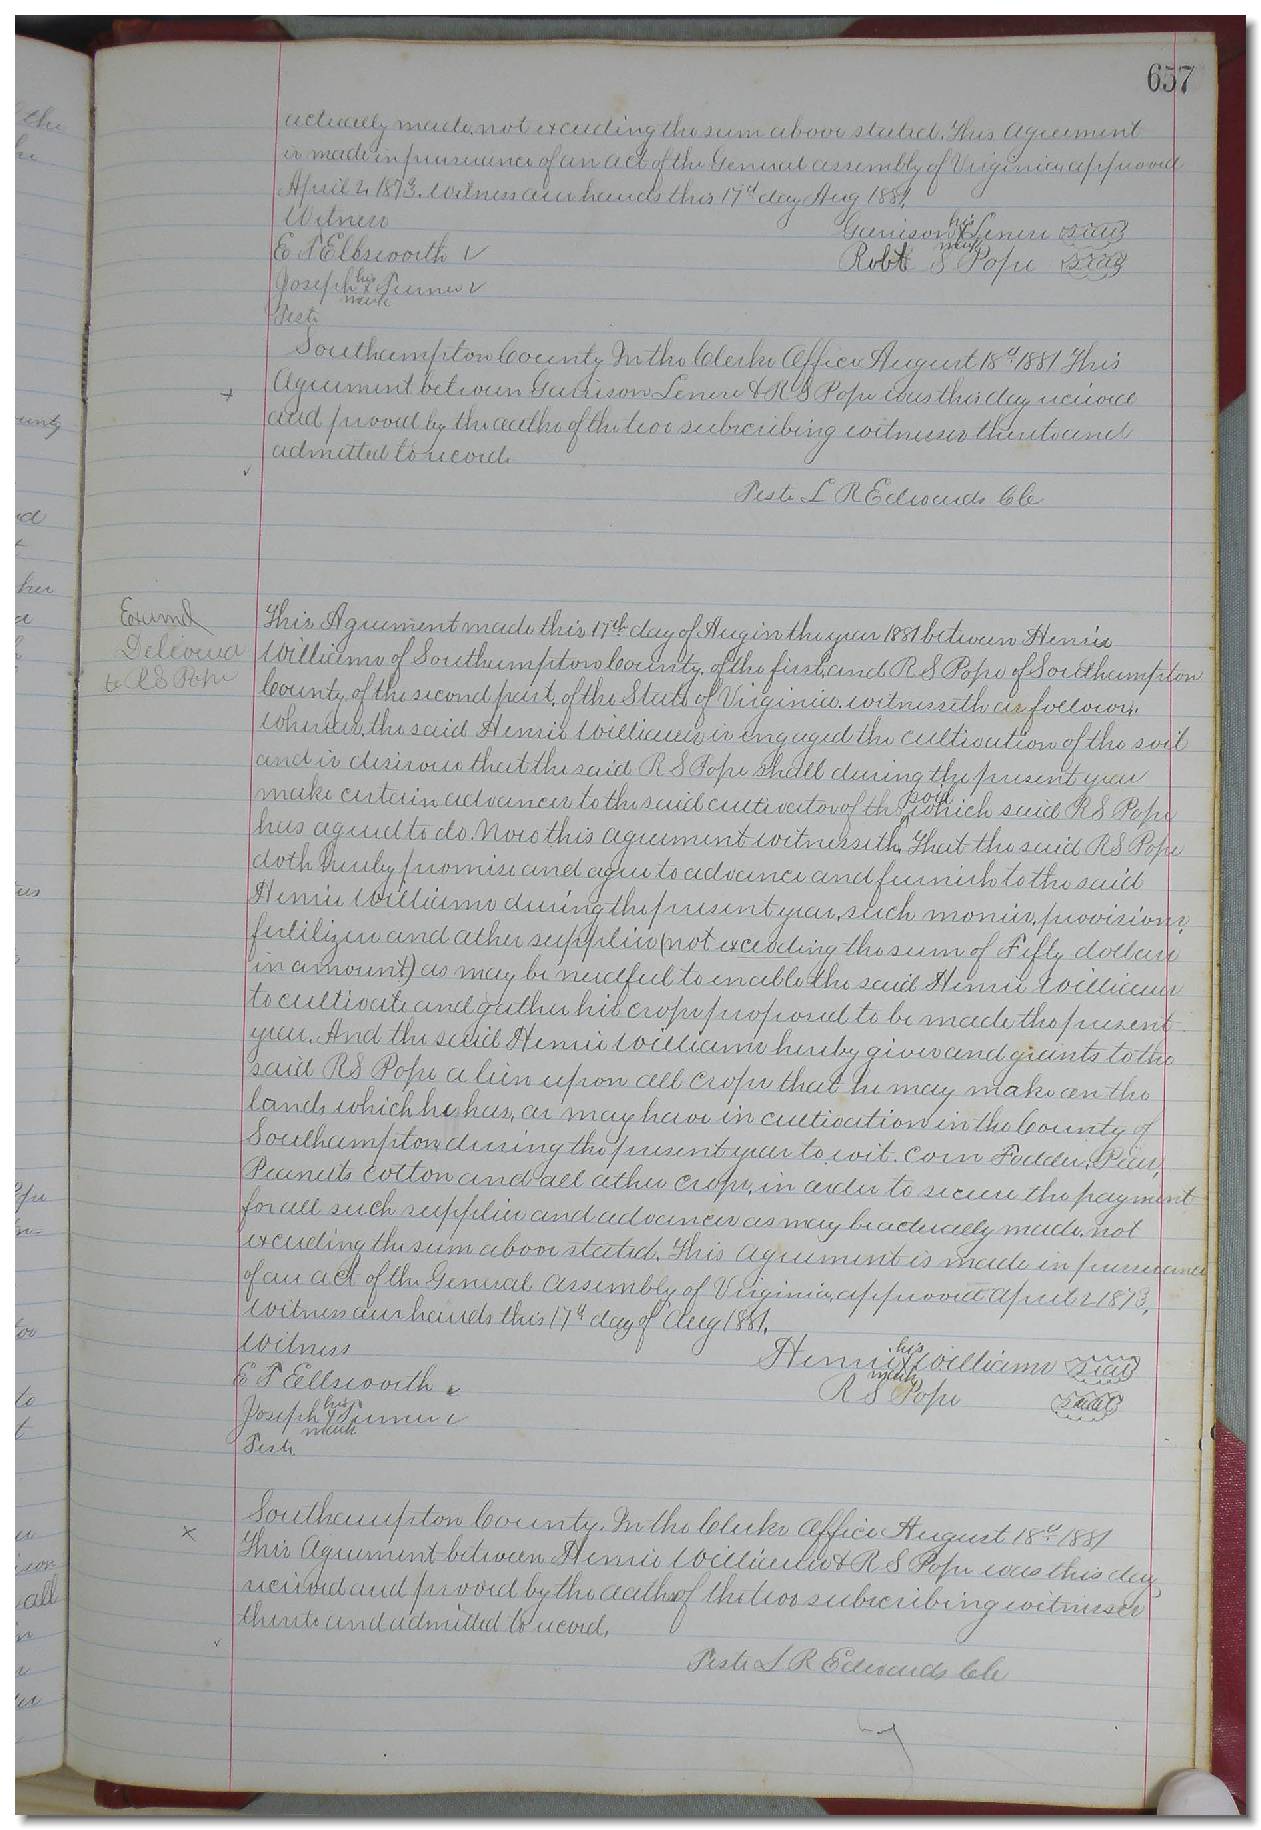 657
actually made, not exceeding the sum above stated. This Agreement
is made in pursuance of an act of the General assembly of Virginia, approved
April 2 1873. Witness our hands this 17th day Aug 1881.
Witness
Garrison his X mark seal
E T Ellsworth
Robt S Pope seal
Joseph his X mark Turner
Teste
Southampton County In the Clerks Office August 18th 1881 This
Agreement between Garrison & R S Pope was this day received
and proved by the oaths of the two subscribing witnesses thereto and
admitted to record.
Teste L R Edwards Clk
Examd
Delivered
to R S Pope
This Agreement made this 17th day of Aug in the year 1881 between Henrie
Williams of Southampton County, of the first, and R S Pope of Southampton
County, of the second part, of the State of Virginia. witnesseth as follows,
whereas, the said Henrie Williams, is engaged the cultivation of the soil
and is desirous that the said R S Pope shall during the present year
make certain advances to the said cultivator of the soil, which said R S Pope
has agreed to do. Now this agreement witnesseth, That the said R S Pope
doth hereby promise and agree to advance and furnish to the said
Henrie Williams during the present year, such monies, provisions,
fertilizers and other supplies (not exceeding the sum of Fifty dollars
in amount) as may be needful to enable the said Henrie Williams
to cultivate and gather his crops proposed to be made the present
year. And the said Henrie Williams hereby gives and grants to the
said R S Pope a lien upon all crops that he may make on the
lands which he has, or may have in cultivation in the County of
Southampton during the present year to wit. Corn Fodder, Peas,
Peanuts Cotton and all other crops, in order to secure the payment
for all such supplies and advances as may be actually made, not
exceeding the sum above stated. This Agreement is made in pursuance
of an act of the General Assembly of Virginia, approved April 2 1873.
Witness our hands this 17th day of Aug 1881.
Witness
Henrie his X mark Williams seal
E T Ellsworth
R S Pope seal
Joseph his X mark Turner
Teste
Southampton County. In the Clerks Office August 18th 1881
This Agreement between Henrie Williams & R S Pope was this day
received and proved by the oaths of the two subscribing witnesses
thereto and admitted to record.
Teste L R Edwards Clk